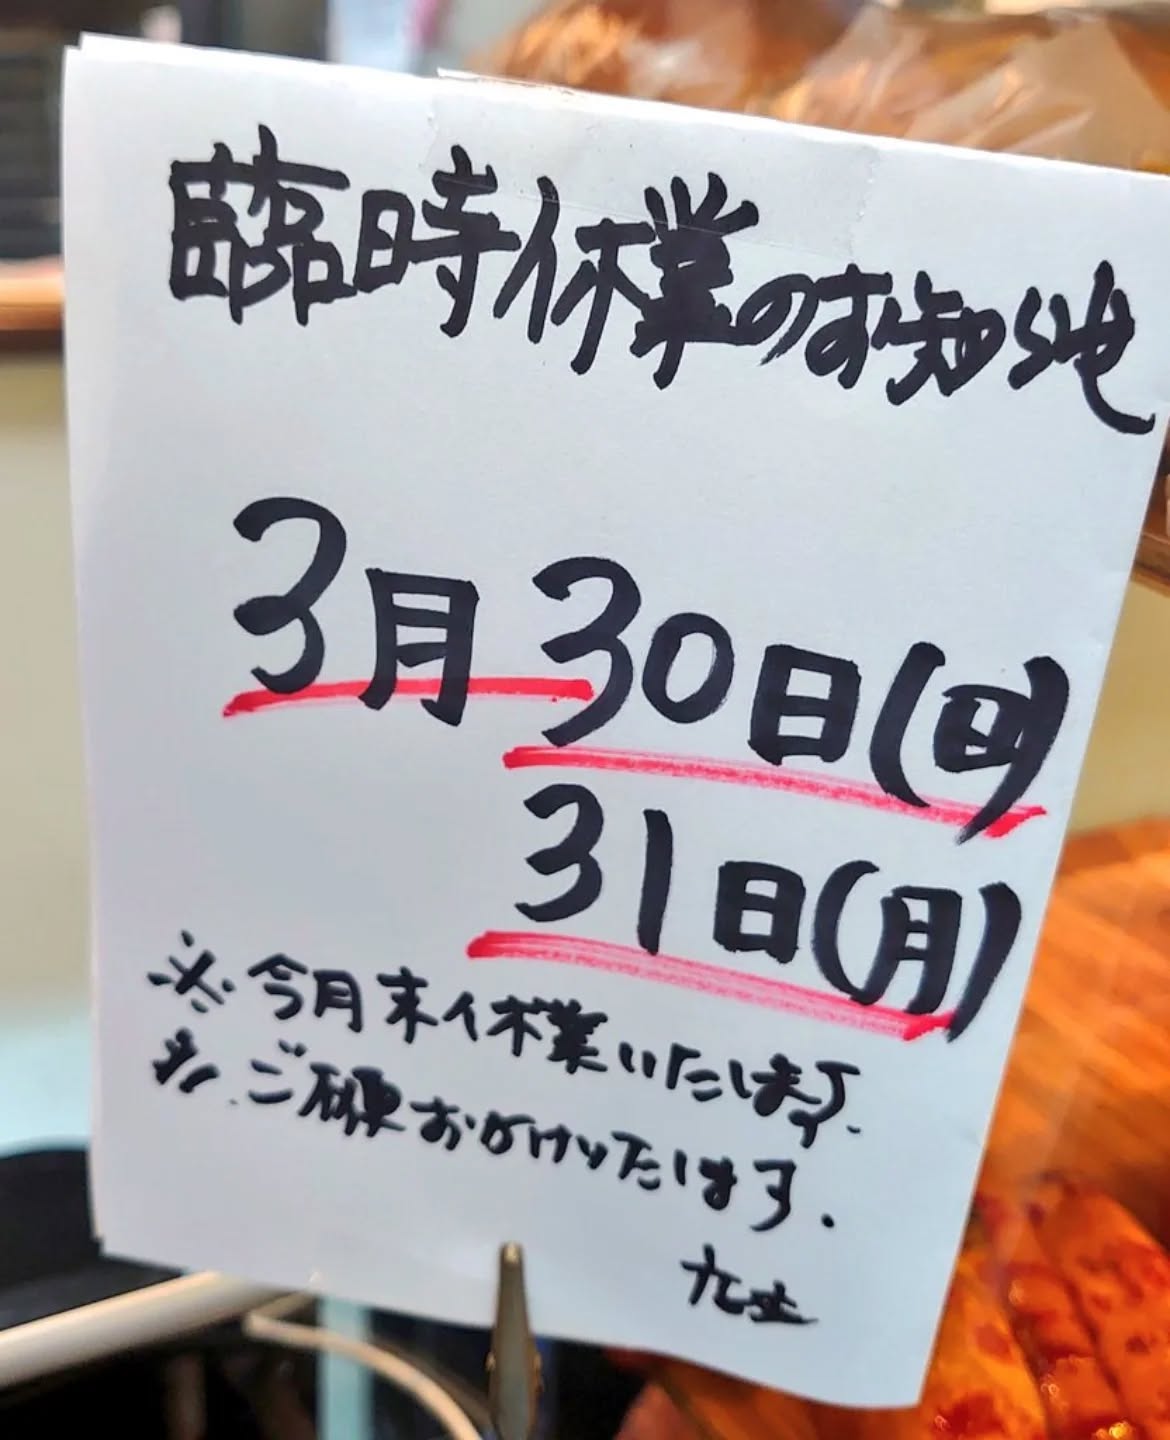 臨時休業のお知らせ
3月30日(日)
31日(月)
※今月末休業いたします.
ご迷惑おかけいたします.